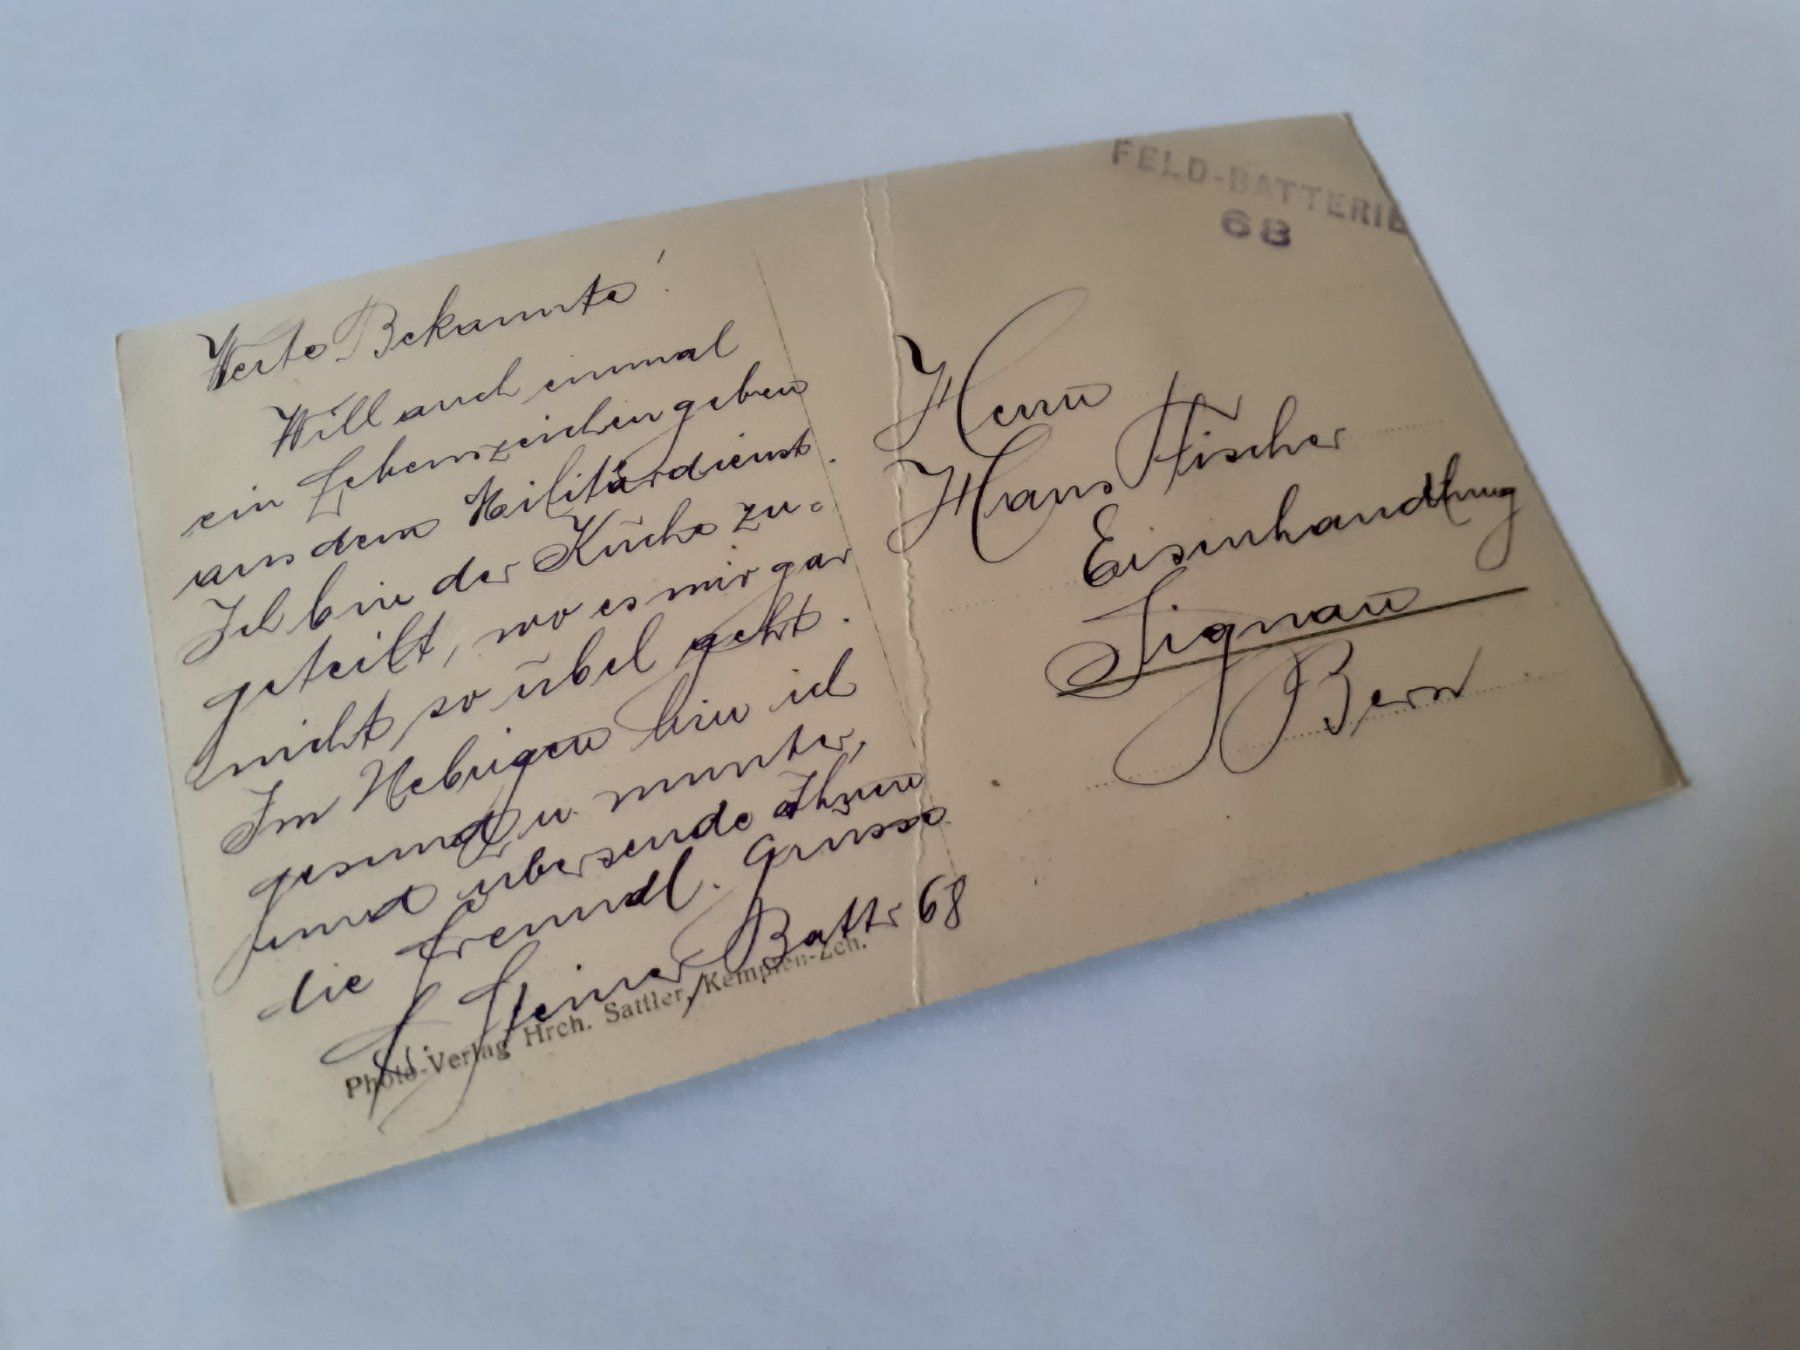 Werte Bekannte!
Will auch einmal
ein Lebenszeichen geben
aus dem Militärdienst.
Ich bin der Küche zu-
geteilt, wo es mir gar
nicht so übel geht.
Im Uebrigen bin ich
gesund u. munter,
und übersende Ihnen
die freundl. Grüsse
Steiner Battr 68
Photo-Verlag Hrch. Sattler, Kempten-Zch.
FELD-BATTERIE
68
Herrn
Hans Fischer
Eisenhandlung
Signau
Bern